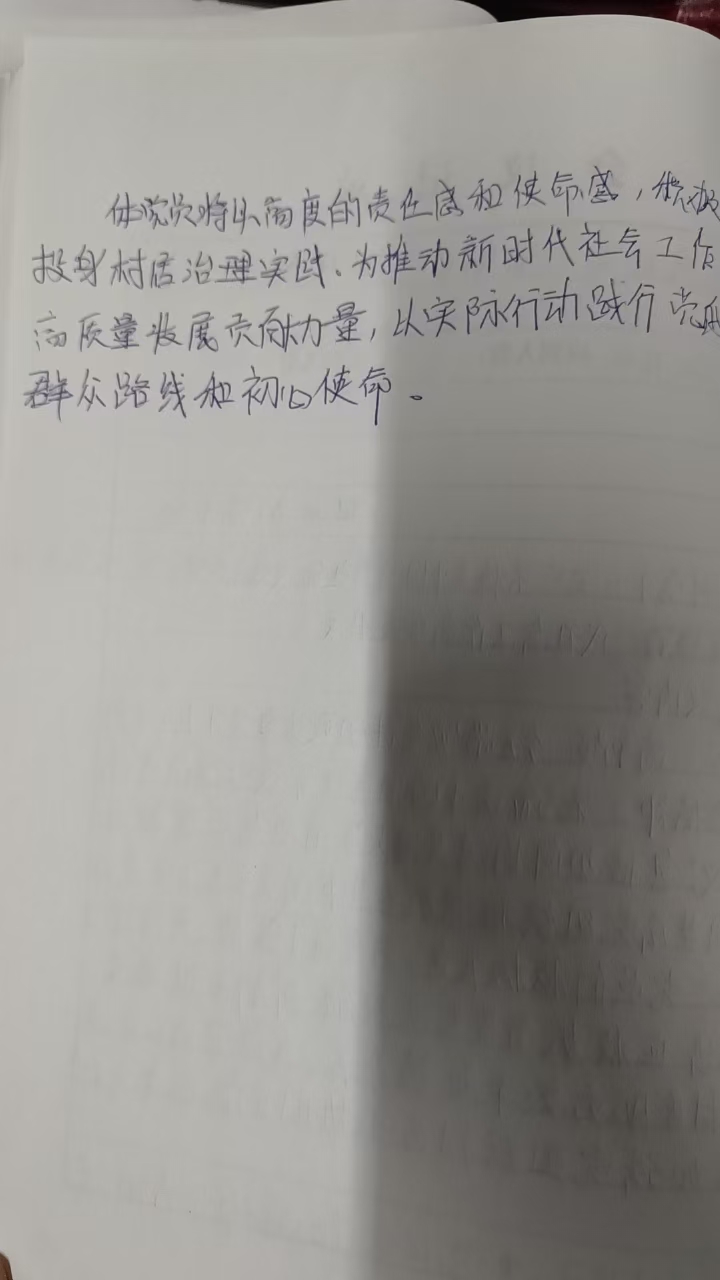 体党员将以高度的责任感和使命感，积极
投身村居治理实践、为推动新时代社会工作
高质量发展贡献力量，以实际行动践行党的
群众路线和初心使命。